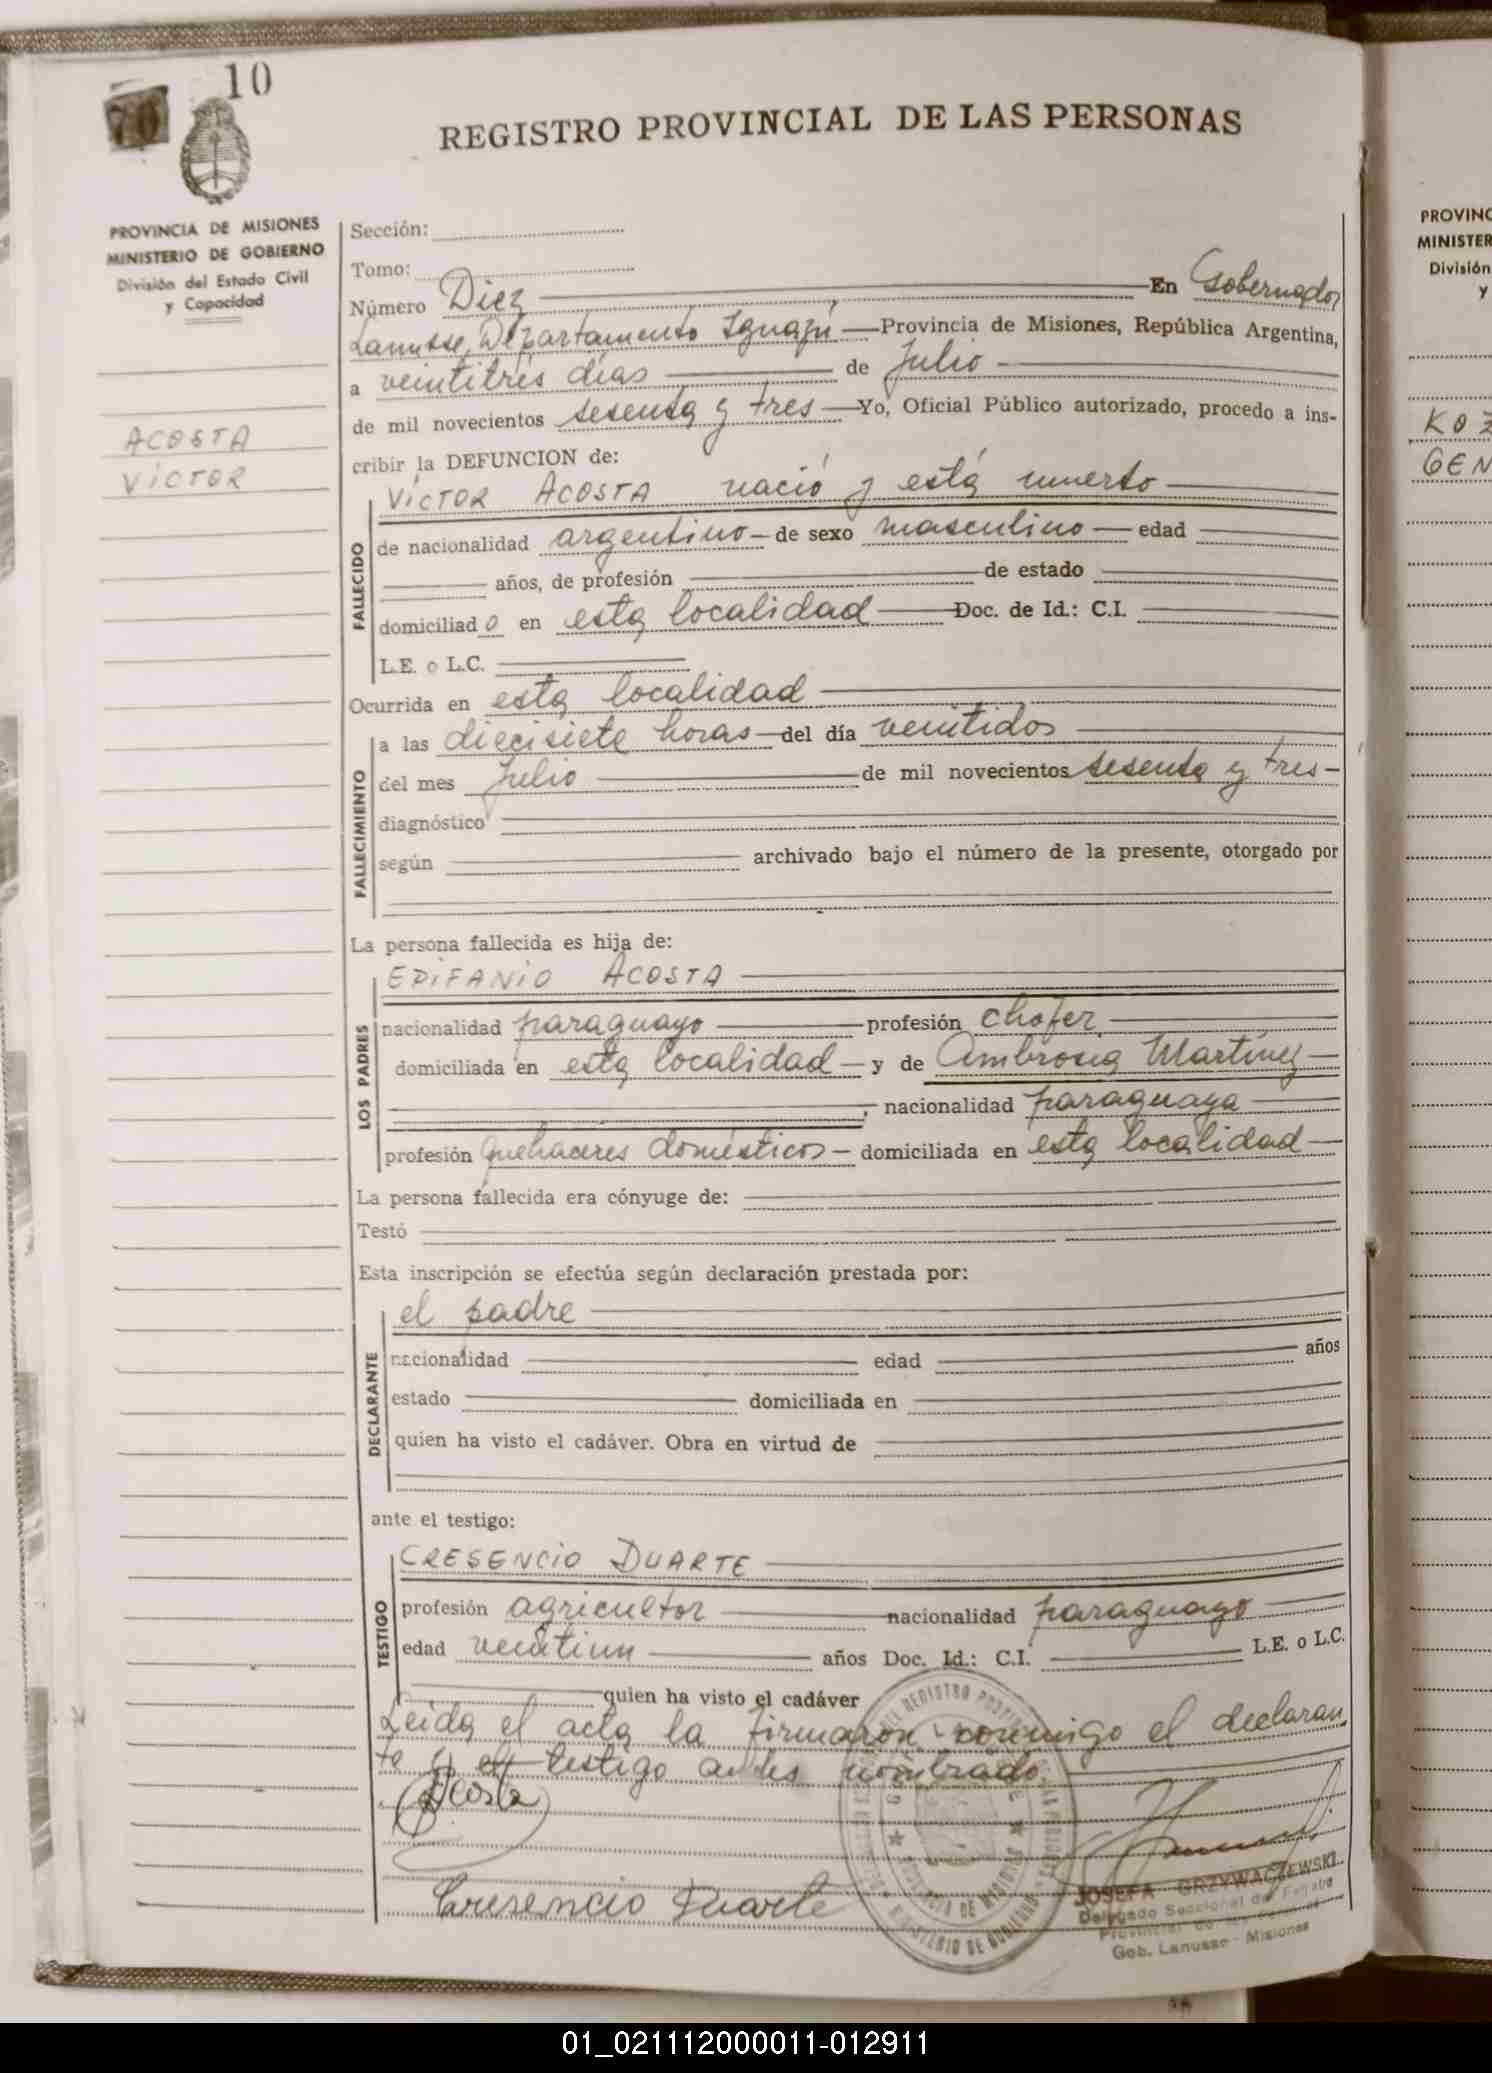 10
70
REGISTRO PROVINCIAL DE LAS PERSONAS
PROVINCIA DE MISIONES
MINISTERIO DE GOBIERNO
División del Estado Civil
y Capacidad
ACOSTA
VÍCTOR
Sección:
Tomo:
Número Diez En Gobernador
Lanusse, Departamento Iguazú Provincia de Misiones, República Argentina,
a veintitrés días de Julio
de mil novecientos sesenta y tres Yo, Oficial Público autorizado, procedo a ins-
cribir la DEFUNCION de:
FALLECIDO
VÍCTOR ACOSTA nació y está muerto
de nacionalidad argentino de sexo masculino edad
años, de profesión de estado
domiciliado en esta localidad Doc. de Id.: C.I.
L.E. o L.C.
Ocurrida en esta localidad
FALLECIMIENTO
a las diecisiete horas del día veintidos
del mes Julio de mil novecientos sesenta y tres
diagnóstico
según archivado bajo el número de la presente, otorgado por
La persona fallecida es hija de:
LOS PADRES
EPIFANIO ACOSTA
nacionalidad paraguayo profesión chofer
domiciliada en esta localidad y de Ambrosia Martínez
, nacionalidad paraguaya
profesión quehaceres domésticos domiciliada en esta localidad
La persona fallecida era cónyuge de:
Testó
Esta inscripción se efectúa según declaración prestada por:
DECLARANTE
el padre
nacionalidad edad años
estado domiciliada en
quien ha visto el cadáver. Obra en virtud de
ante el testigo:
TESTIGO
CRESENCIO DUARTE
profesión agricultor nacionalidad paraguayo
edad veintiun años Doc. Id.: C.I. L.E. o L.C.
quien ha visto el cadáver
Leida el acta la firmaron conmigo el declaran
te y el testigo antes nombrado
Acosta
Cresencio Duarte
JOSEFA GRZYWACZEWSKI
Delegado Seccional del Registro
Provincial de las Personas
Gob. Lanusse - Misiones
PROVINC
MINISTER
División
y
KOZ
GEN
01_021112000011-012911